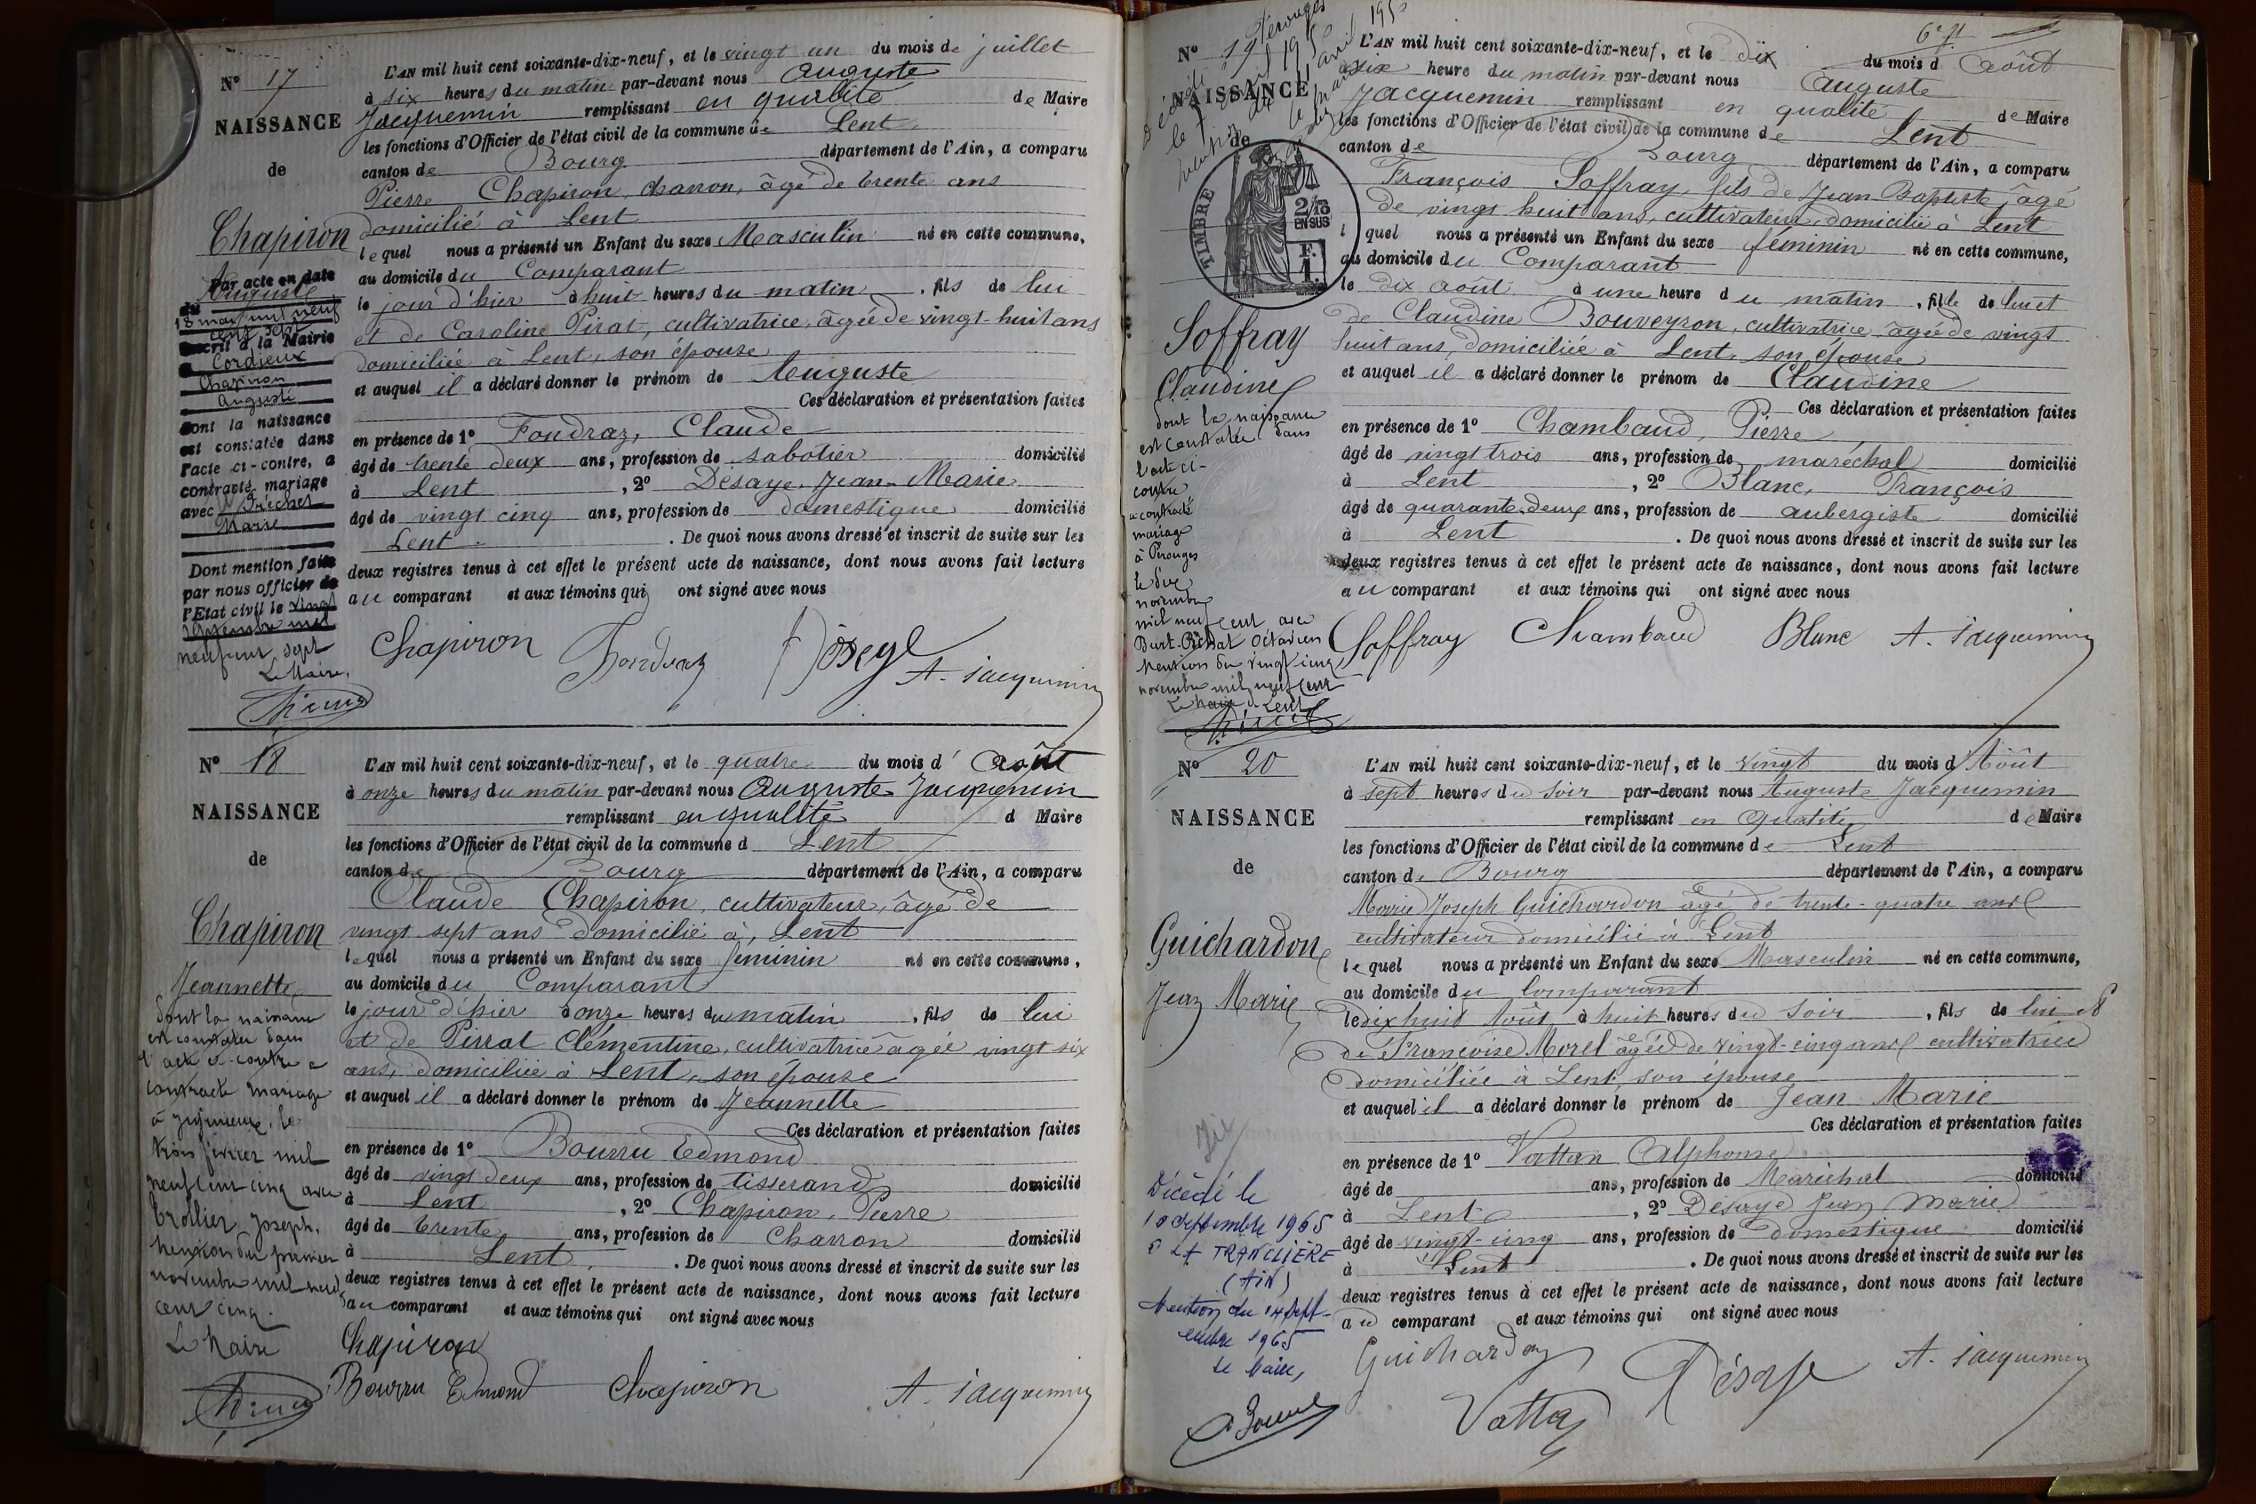 N° 17
NAISSANCE
de
Chapiron
Auguste
Par acte en date
du
18 mai mil neuf
cent sept
inscrit à la Mairie
Cordieux
Chapiron
Auguste
dont la naissance
est constatée dans
l'acte ci-contre, a
contracté mariage
avec Frécher
Marie
Dont mention faite
par nous officier de
l'Etat civil le vingt
septembre mil
neuf cent sept
Le Maire,
L'AN mil huit cent soixante-dix-neuf, et le vingt un du mois de juillet
à six heures du matin par-devant nous Auguste
Jacquemin remplissant en qualité de Maire
les fonctions d'Officier de l'état civil de la commune de Lent
canton de Bourg département de l'Ain, a comparu
Pierre Chapiron, charron, âgé de trente ans
domicilié à Lent
lequel nous a présenté un Enfant du sexe Masculin né en cette commune,
au domicile du Comparant
le jour d'hier à huit heures du matin, fils de lui
et de Caroline Pirat, cultivatrice, âgée de vingt-huit ans
domiciliée à Lent, son épouse
et auquel il a déclaré donner le prénom de Auguste
Ces déclaration et présentation faites
en présence de 1° Fondraz, Claude
âgé de trente deux ans, profession de sabotier domicilié
à Lent, 2° Désaye, Jean-Marie
âgé de vingt cinq ans, profession de domestique domicilié
Lent. De quoi nous avons dressé et inscrit de suite sur les
deux registres tenus à cet effet le présent acte de naissance, dont nous avons fait lecture
au comparant et aux témoins qui ont signé avec nous
Chapiron Fondraz Déseye A. Jacquemin
N° 18
NAISSANCE
de
Chapiron
Jeannette
Dont la naissance
est constatée dans
l'acte ci-contre a
contracté mariage
à Jujurieux, le
trois février mil
neuf cent cinq avec
Trollier Joseph.
Mention du premier
novembre mil neuf
cent cinq.
Le Maire
L'AN mil huit cent soixante-dix-neuf, et le quatre du mois d'Août
à onze heures du matin par-devant nous Auguste Jacquemin
remplissant en qualité d Maire
les fonctions d'Officier de l'état civil de la commune d Lent
canton de Bourg département de l'Ain, a comparu
Claude Chapiron, cultivateur, âgé de
vingt sept ans domicilié à, Lent
lequel nous a présenté un Enfant du sexe féminin né en cette commune,
au domicile du Comparant
le jour d'hier à onze heures du matin, fils de lui
et de Pirrat Clémentine, cultivatrice âgée vingt six
ans, domiciliée à Lent, son épouse
et auquel il a déclaré donner le prénom de Jeannette
Ces déclaration et présentation faites
en présence de 1° Bourru Edmond
âgé de vingt deux ans, profession de tisserand domicilié
à Lent, 2° Chapiron, Pierre
âgé de trente ans, profession de Charron domicilié
à Lent. De quoi nous avons dressé et inscrit de suite sur les
deux registres tenus à cet effet le présent acte de naissance, dont nous avons fait lecture
au comparant et aux témoins qui ont signé avec nous
Chapiron
Bourru Edmond Chapiron A. Jacquemin
N° 19
NAISSANCE
de
TIMBRE
2/10
EN SUS
F.
1.
Soffray
Claudine
dont la naissance
est constatée dans
l'acte ci-
contre
a contracté
mariage
à Pérouges
le dix
novembre
mil neuf cent avec
Burt-Pichat Octavien
Mention du vingt cinq
novembre mil neuf cent
Le Maire de Lent
L'AN mil huit cent soixante-dix-neuf, et le dix du mois d Août
à six heure du matin par-devant nous Auguste
Jacquemin remplissant en qualité de Maire
les fonctions d'Officier de l'état civil de la commune de Lent
canton de Bourg département de l'Ain, a comparu
François Soffray, fils de Jean Baptiste, âgé
de vingt huit ans, cultivateur, domicilié à Lent
l quel nous a présenté un Enfant du sexe féminin né en cette commune,
au domicile du Comparant
le dix août à une heure du matin, fille de lui et
de Claudine Bouveyron, cultivatrice, âgée de vingt
huit ans, domiciliée à Lent, son épouse
et auquel il a déclaré donner le prénom de Claudine
Ces déclaration et présentation faites
en présence de 1° Chambaud, Pierre
âgé de vingt trois ans, profession de maréchal domicilié
à Lent, 2° Blanc, François
âgé de quarante-deux ans, profession de aubergiste domicilié
à Lent. De quoi nous avons dressé et inscrit de suite sur les
deux registres tenus à cet effet le présent acte de naissance, dont nous avons fait lecture
au comparant et aux témoins qui ont signé avec nous
Soffray Chambaud Blanc A. Jacquemin
N° 20
NAISSANCE
de
Guichardon
Jean Marie
Décédé le
10 septembre 1965
à LA TRANCLIÈRE
(AIN)
Mention du 14 sept-
embre 1965
Le Maire,
L'AN mil huit cent soixante-dix-neuf, et le vingt du mois d'Août
à sept heures du soir par-devant nous Auguste Jacquemin
remplissant en qualité de Maire
les fonctions d'Officier de l'état civil de la commune de Lent
canton de Bourg département de l'Ain, a comparu
Marie Joseph Guichardon âgé de trente-quatre ans
cultivateur domicilié à Lent
lequel nous a présenté un Enfant du sexe Masculin né en cette commune,
au domicile du Comparant
le dix huit Août à huit heures du soir, fils de lui et
de Françoise Morel âgée de vingt-cinq ans cultivatrice
domiciliée à Lent, son épouse
et auquel il a déclaré donner le prénom de Jean Marie
Ces déclaration et présentation faites
en présence de 1° Vattan Alphonse
âgé de ans, profession de Maréchal domicilié
à Lent, 2° Désaye Jean Marie
âgé de vingt-cinq ans, profession de domestique domicilié
à Lent. De quoi nous avons dressé et inscrit de suite sur les
deux registres tenus à cet effet le présent acte de naissance, dont nous avons fait lecture
au comparant et aux témoins qui ont signé avec nous
Guichardon Désaye A. Jacquemin
Vattan